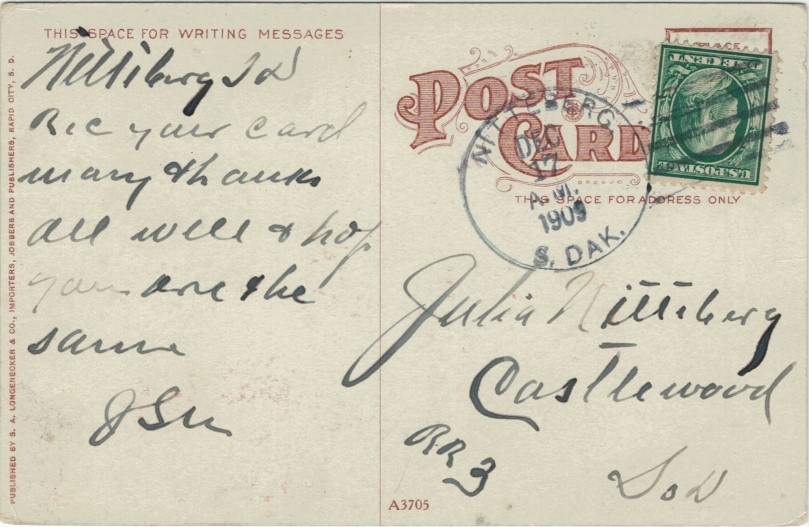 THIS SPACE FOR WRITING MESSAGES
Nittiberg S D
Rec your card
many thanks
all well & hop
you are the
same
PUBLISHED BY S. A. LONGENECKER & CO., IMPORTERS, JOBBERS AND PUBLISHERS, RAPID CITY, S. D.
POST
CARD
THIS SPACE FOR ADDRESS ONLY
PLACE
ONE CENT
U.S. POSTAGE
DEC
17
A.M.
1909
S. DAK.
Julia Nittiberg
Castlewood
RR 3
So D
A3705